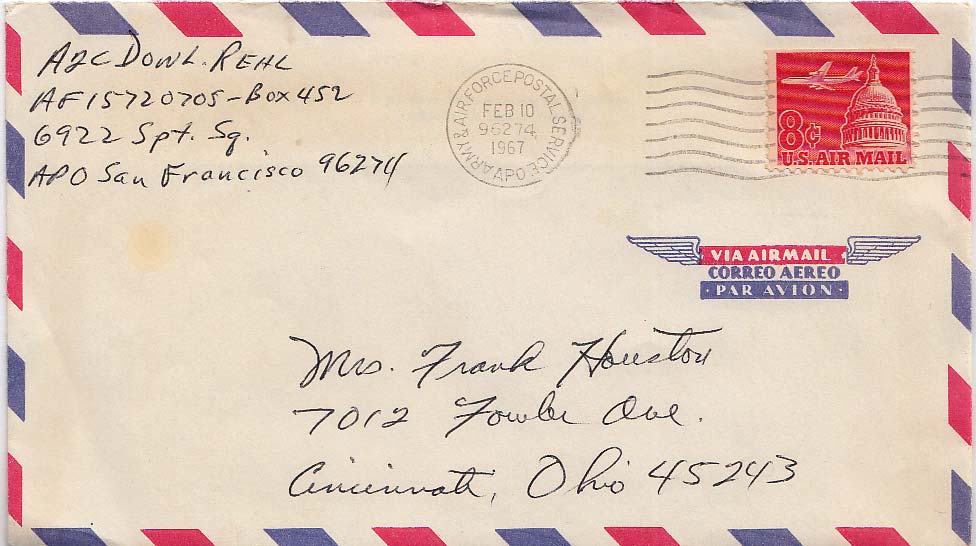 A2C DON L. REHL
AF15720705-Box 452
6922 Spt. Sq.
APO San Francisco 96274
ARMY & AIR FORCE POSTAL SERVICE
APO
FEB 10
96274
1967
8¢
U.S. AIR MAIL
VIA AIRMAIL
CORREO AEREO
· PAR AVION ·
Mrs. Frank Houston
7012 Fowler Ave.
Cincinnati, Ohio 45243